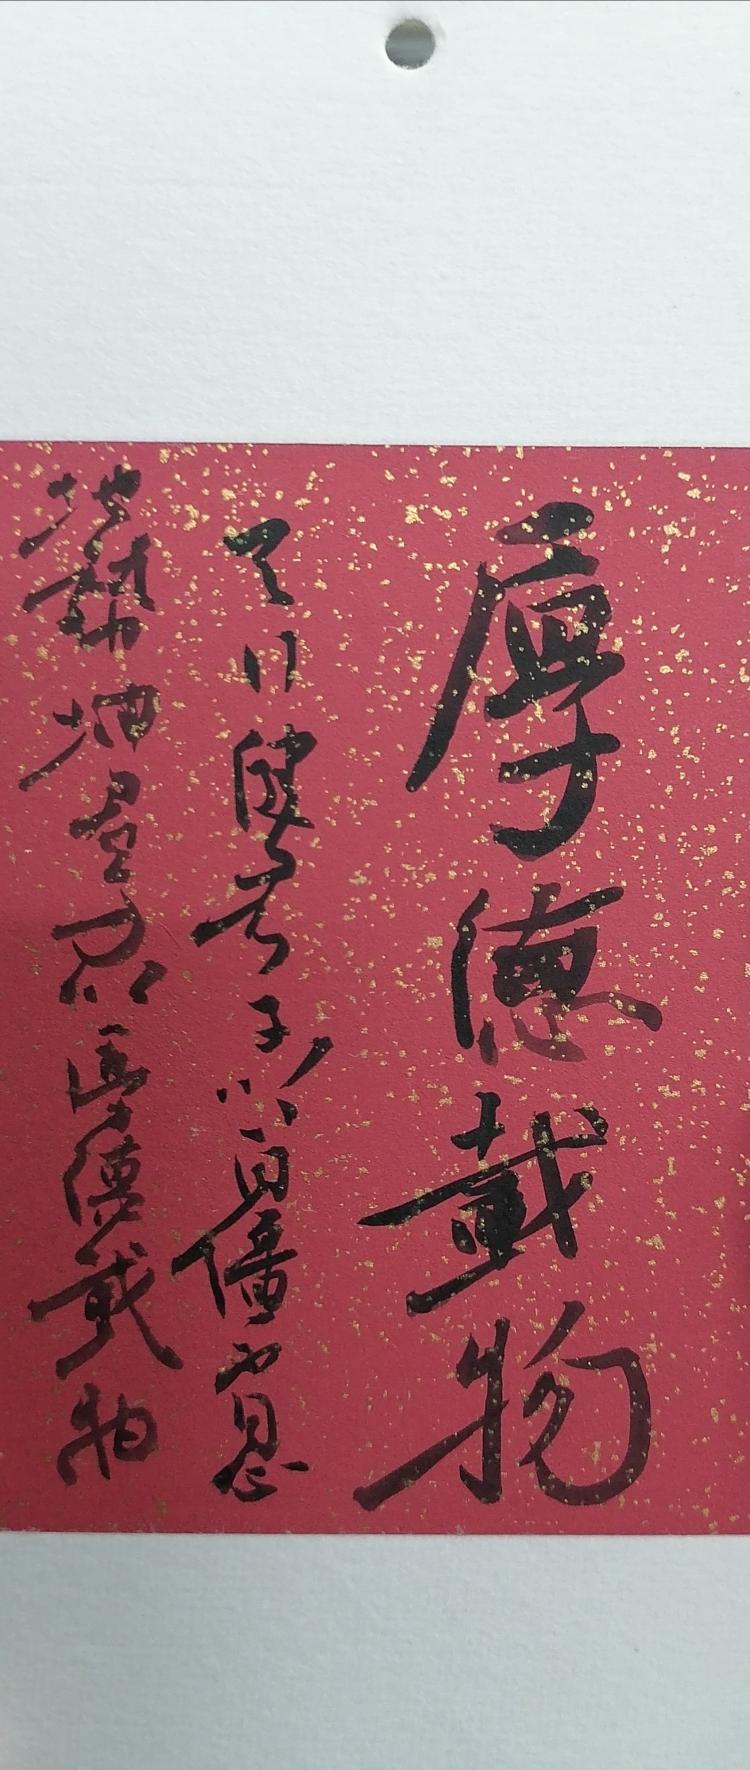 厚德載物
天行健君子以自彊不息
地勢坤君子以厚德載物